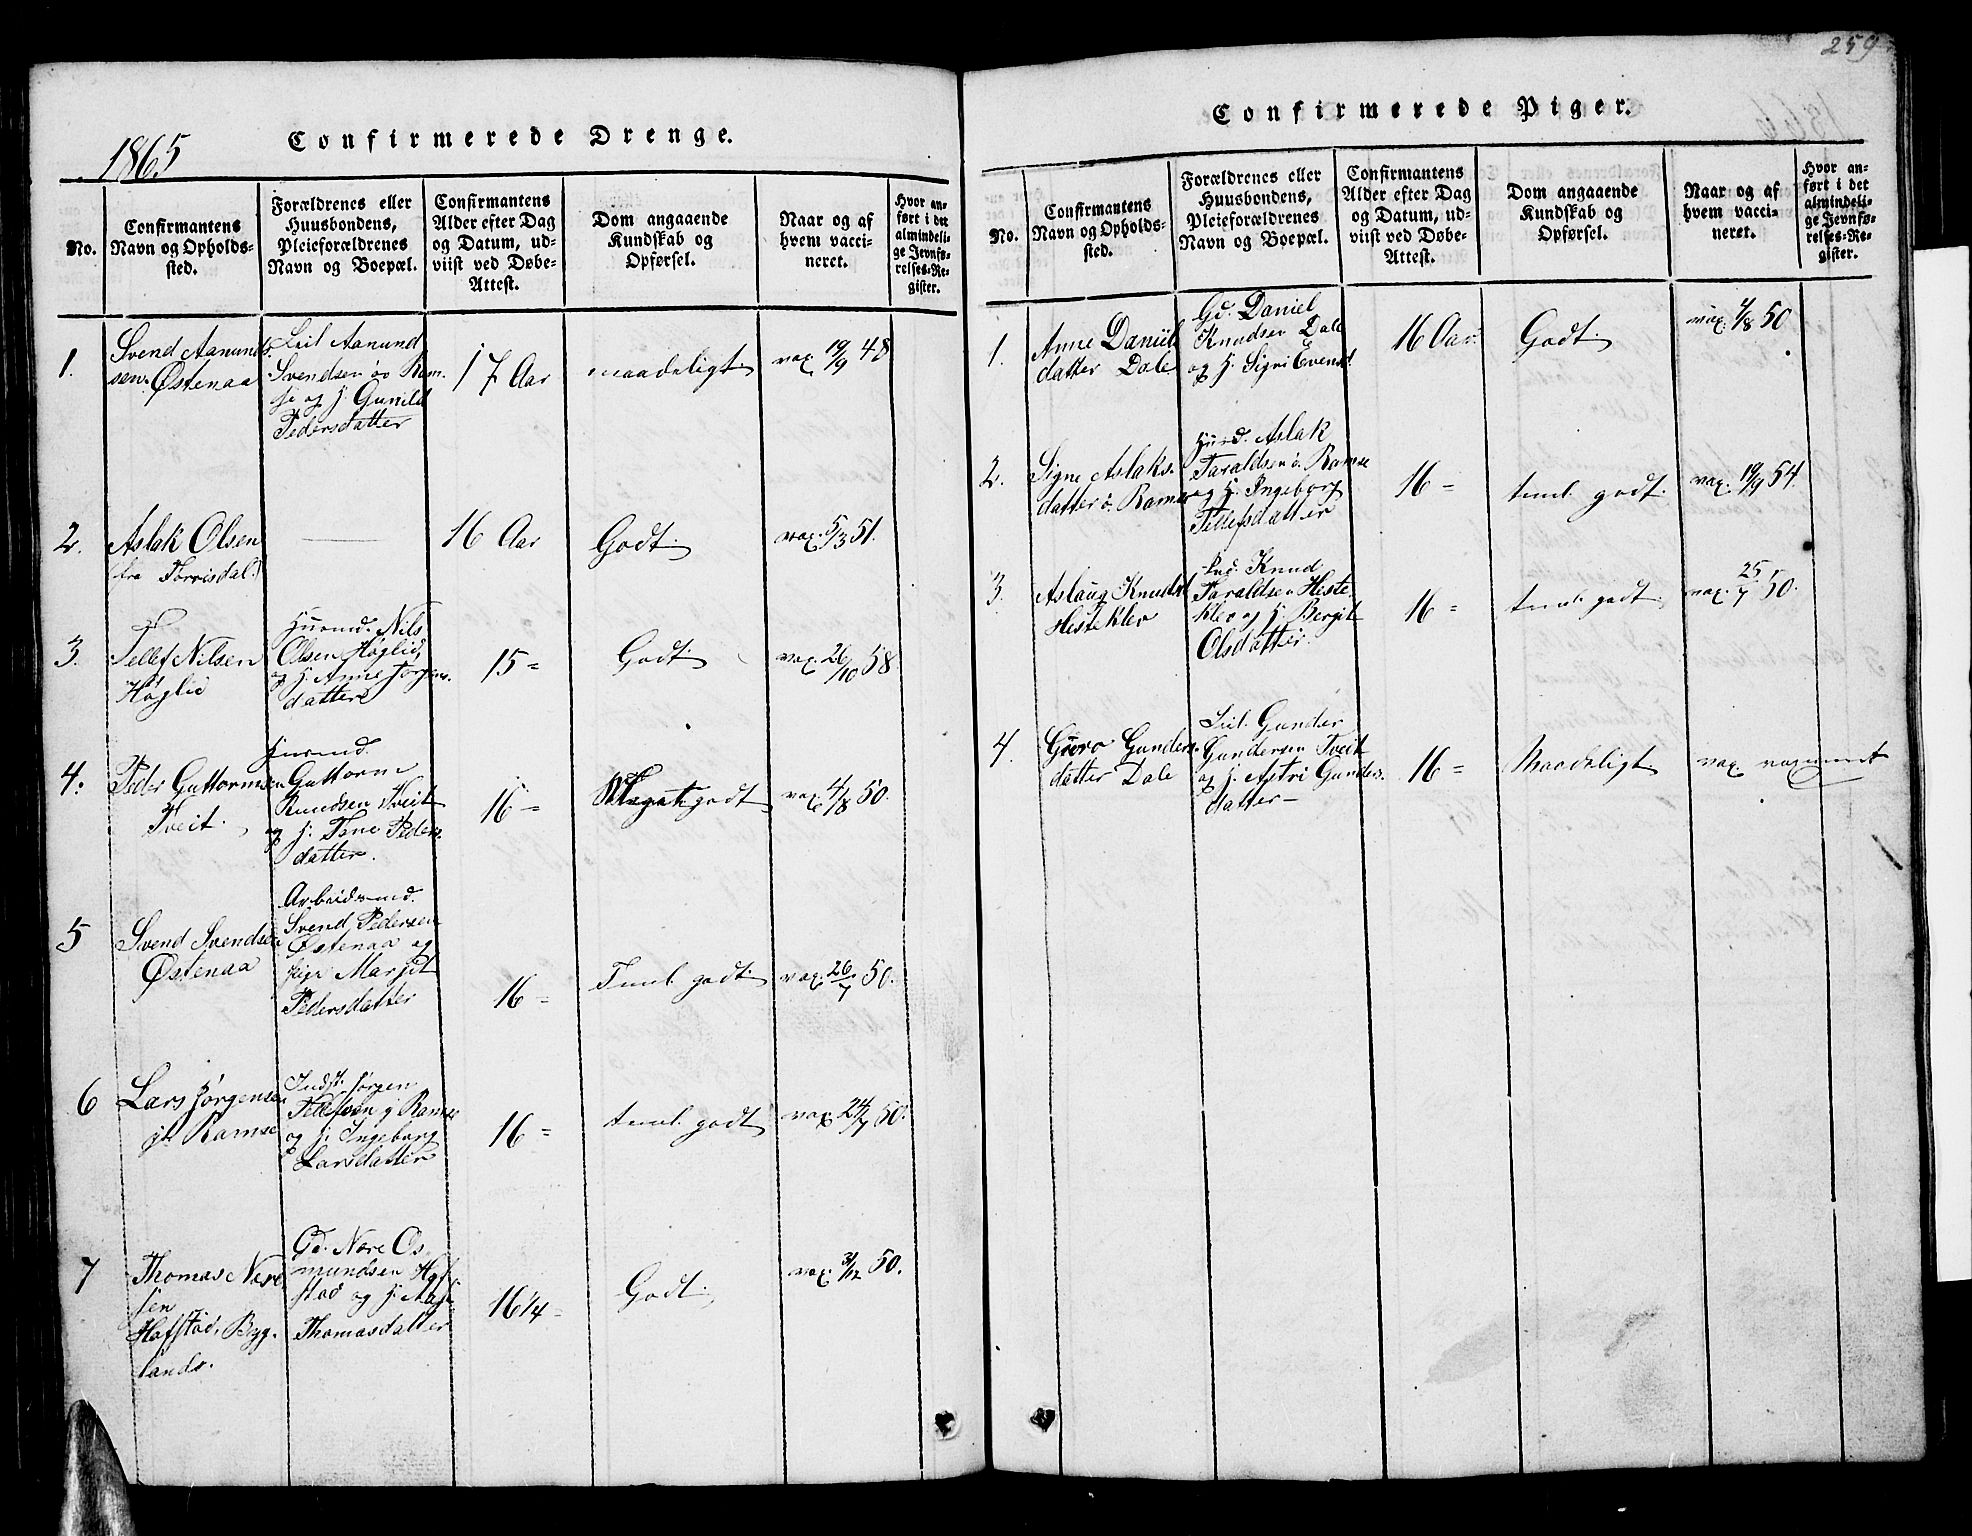 259
1865
Confirmerede Drenge.
No.
Confirmantens
Navn og Opholds-
sted.
Forældrenes eller
Huusbondens,
Pleieforældrenes
Navn og Boepæl.
Confirmantens
Alder efter Dag
og Datum, ud-
viist ved Døbe-
Attest.
Dom angaaende
Kundskab og
Opførsel.
Naar og af
hvem vacci-
neret.
Hvor an-
ført i det
almindeli-
ge Jevnfø-
relses-Re-
gister.
1.
Svend Aanunds
sen Østenaa
Leil Aanund
Svendsen ø Ram-
se og h. Gunild
Pedersdatter
17 Aar
maadeligt
vax. 19/9 48
2.
Aslak Olsen
(fra Torvisdal.)
16 Aar
Godt.
vax. 5/3 51.
3.
Tellef Nilsen
Høglie
Huusmd. Nils
Olsen Høglie,
og h. Anne Jørgens-
datter
15 =
Godt.
vax. 26/10 58.
4.
Peder Guttormsen
Tveit.
Huusmd.
Guttorm
Knudsen Tveit
og h. Tone Peders
datter.
16 =
godt
vax. 4/8 50.
5
Svend Svendsen
Østenaa
Arbeidsmd.
Svend Pedersen
Østenaa og
pige Margit
Pedersdatter
16 =
Teml. godt.
vax. 26/7 50.
6
Lars Jørgensen
y. Ramse
Indst. Jørgen
Tellefsen y Ramse
og h. Ingeborg
Larsdatter
16 =
teml. godt
vax. 24/7 50.
7
Thomas Nere
sen
Hafstad, Byg-
lands.
Gd. Nere Os-
mundsen Haf-
stad og h. Aase
Thomasdatter
16 1/4 =
Godt.
vax. 31/12 50.
Confirmerede Piger.
No.
Confirmantens
Navn og Opholds-
sted.
Forældrenes eller
Huusbondens,
Pleieforældrenes
Navn og Boepæl.
Confirmantens
Alder efter Dag
og Datum, ud-
viist ved Døbe-
Attest.
Dom angaaende
Kundskab og
Opførsel.
Naar og af
hvem vacci-
neret.
Hvor an-
ført i det
almindeli-
ge Jevnfø-
relses-Re-
gister.
1.
Anne Daniel
datter Dale
Gd. Daniel
Knudsen Dale
og h. Signi Evensd
16 Aar.
Godt.
vax. 4/8 50
2.
Signe Aslaks-
datter ø. Ramse
Huusmd. Aslak
Taraldsen ø. Ramse
og h. Ingeborg
Tellefsdatter
16 =
teml. godt.
vax. 19/9 54.
3.
Aslaug Knudsd
Hesteklev
Knud
Taraldsen Heste-
klev og h. Bergit
Olsdatter.
16 =
teml. godt.
vax. 25/7 50.
4.
Guro Gunders-
datter Dale
Leil. Gunder
Gundersen Tveit
og h. Astri Gunders-
datter –
16 =
Maadeligt
vax.